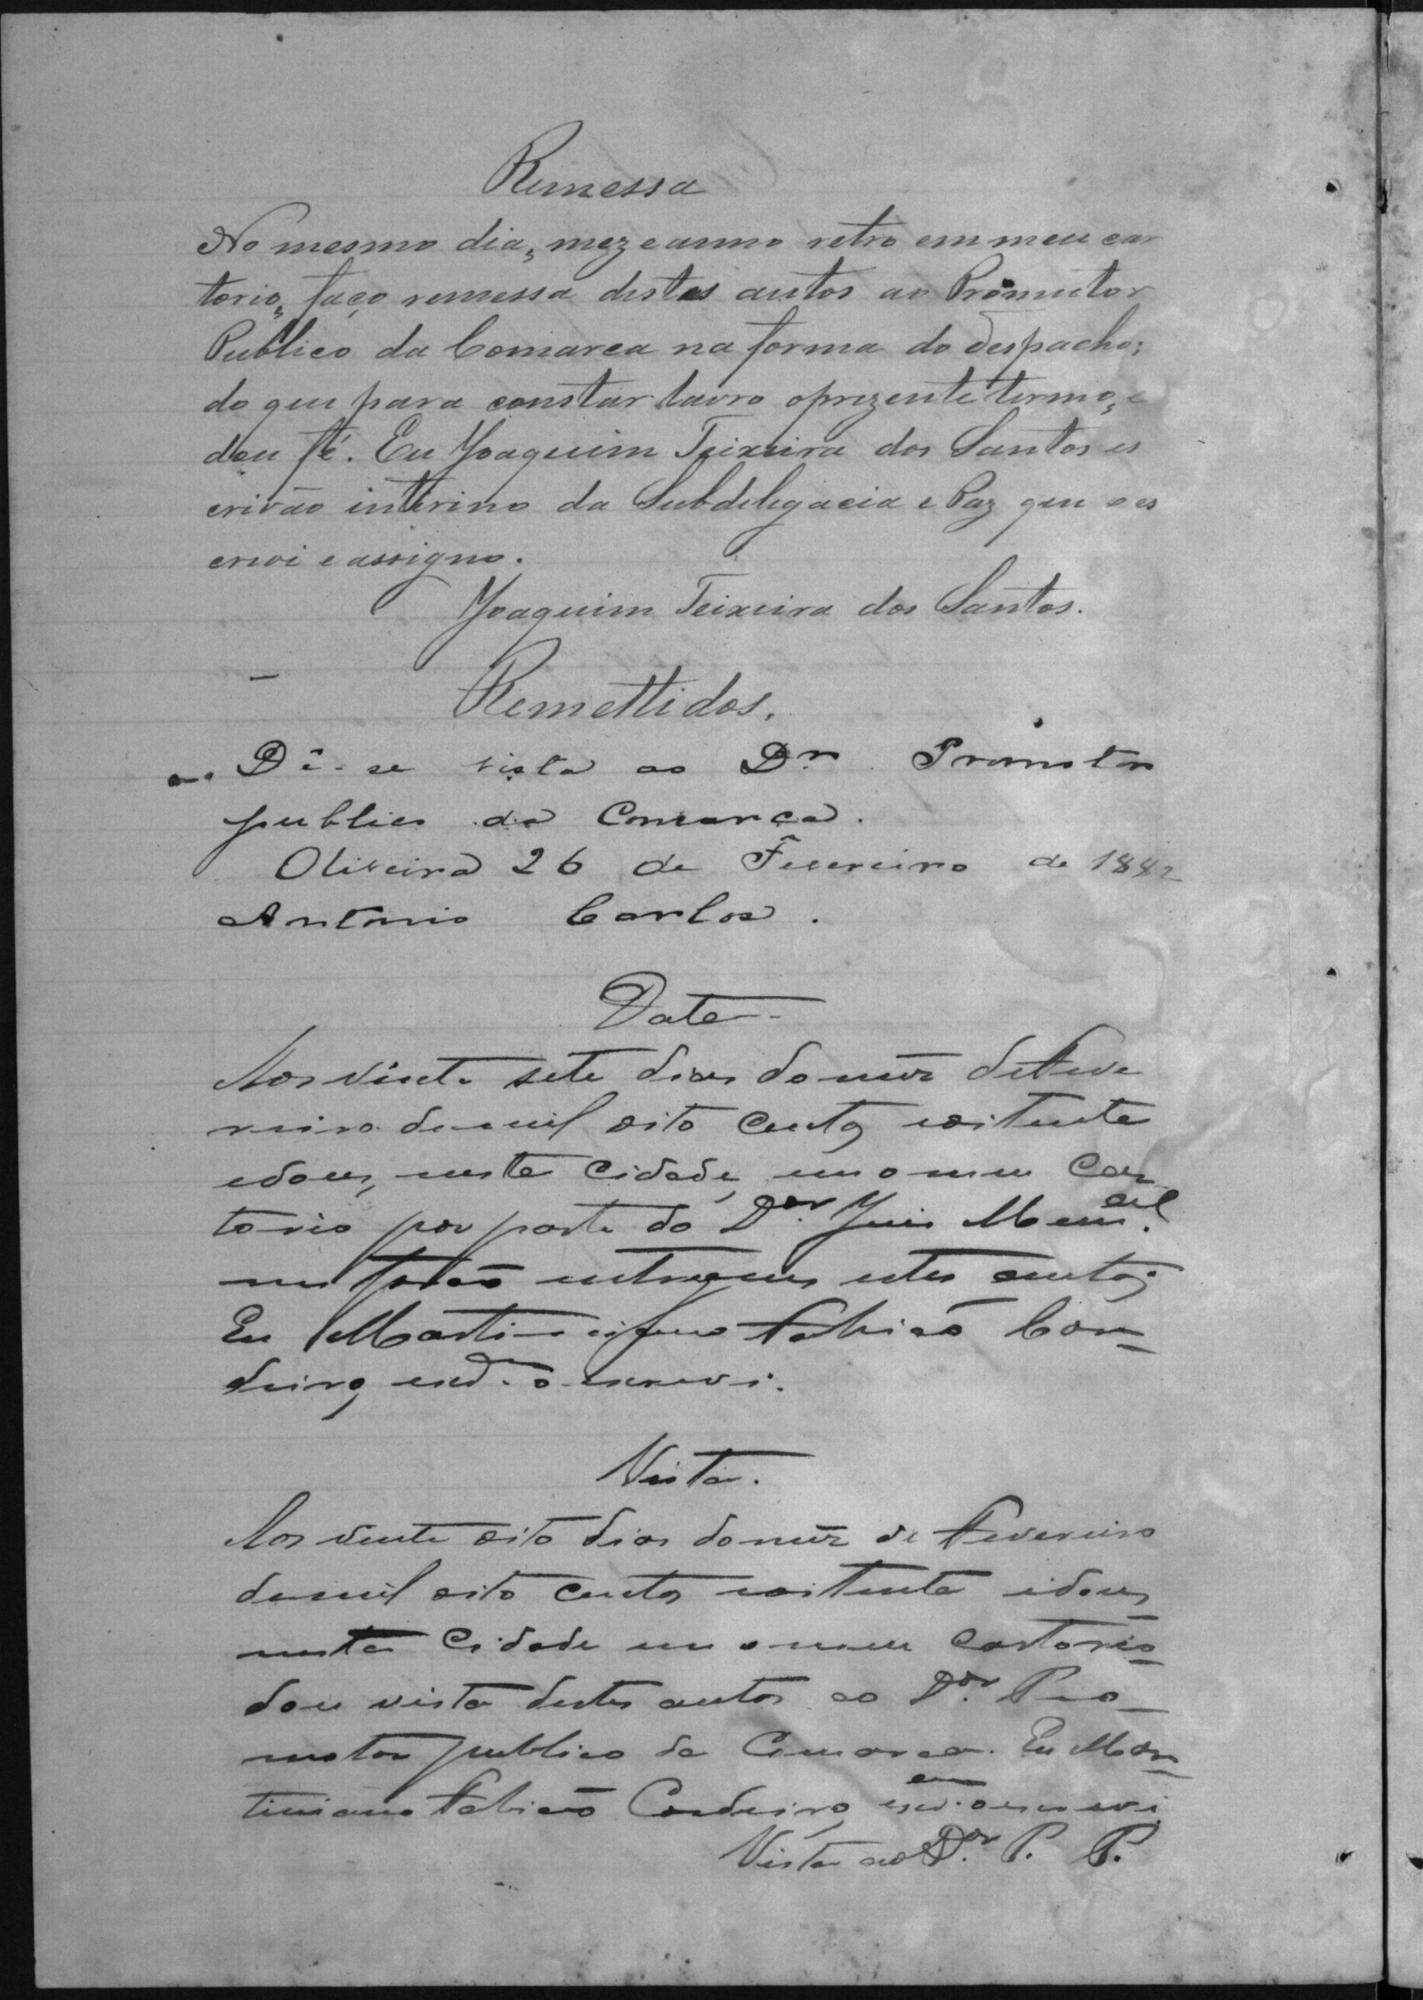 Remessa
No mesmo dia, mez e anno retro em meu car
torio, faço remessa destes autos ao Promutor
Publico da Comarca na forma do despacho;
do que para constar lavro o prezente termo, e
dou fé. Eu Joaquim Teixeira dos Santos es
crivão interino da Subdelegacia e Paz que o es
crevi e assigno.
Joaquim Teixeira dos Santos.
Remettidos.
Dê-se vista ao Dr. Promotor
publico da Comarca.
Oliveira 26 de Fevereiro de 1882
Antonio Carlos.
Data
Aos vinte sete dias do mez de Feve
reiro de mil oito centos e oitenta
e dous, nesta Cidade, em o meu Car
torio por parte do Dor. Juis Mem.al
me forão entregues estes autos;
Eu Martiniano Fabião Cor-
deiro, escr.am o escrevi.
Vista.
Aos vente oito dias do mez de Fevereiro
de mil oito centos e oitenta e dous
nesta Cidade em o meu Cartorio
dou vista destes autos ao Dor. Pro-
motor publico da Comarca. Eu Mar-
tiniano Fabião Cordeiro, escr.am o escrevi
Vista ao Dor. P. P.